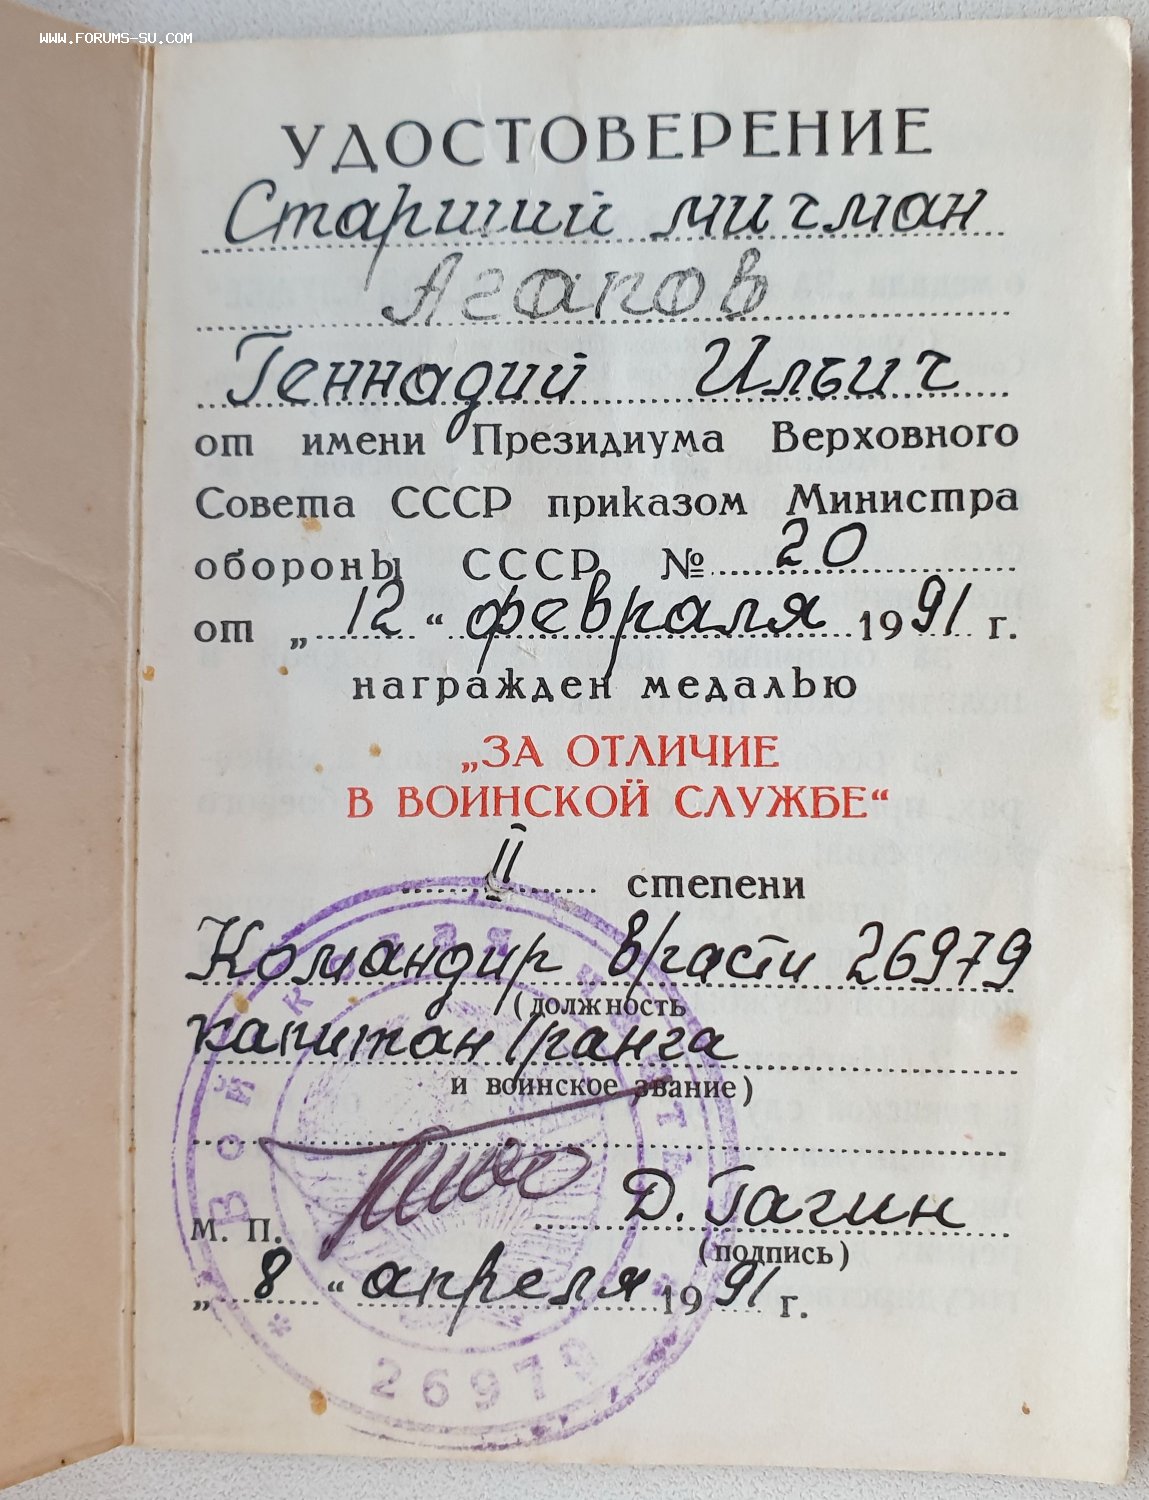 WWW.FORUMS-SU.COM
УДОСТОВЕРЕНИЕ
Старший мичман
Агапов
Геннадий Ильич
от имени Президиума Верховного
Совета СССР приказом Министра
обороны СССР № 20
от „12“ февраля 1991 г.
награжден медалью
„ЗА ОТЛИЧИЕ
В ВОИНСКОЙ СЛУЖБЕ“
II степени
Командир в/части 26979
(должность
капитан I ранга
и воинское звание)
Д. Гагин
М. П.
(подпись)
„8“ апреля 1991 г.
Войсковая часть
* 26979 *